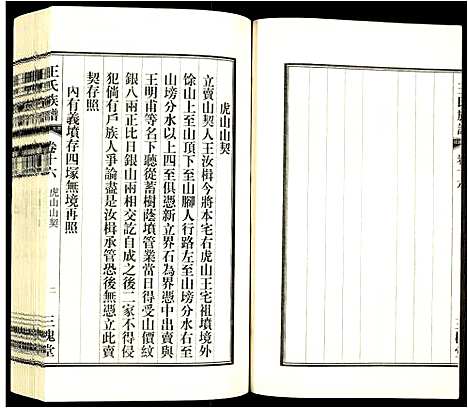 虎山山契
立賣山契人王汝楫今將本宅右虎山王宅祖墳境外
餘山上至山頂下至山腳人行路左至山塝分水右至
山塝分水以上四至俱憑新立界石為界憑中出賣與
王明甫等名下聽從蓄樹蔭墳管業當日得受山價紋
銀八兩正比日銀山兩相交訖自成之後二家不得行
犯倘有戶族人爭論盡是汝楫承管恐後無憑立此賣
契存照
內有義墳存四塚無境再照
王氏族譜
卷十六
虎山山契
二
三槐堂